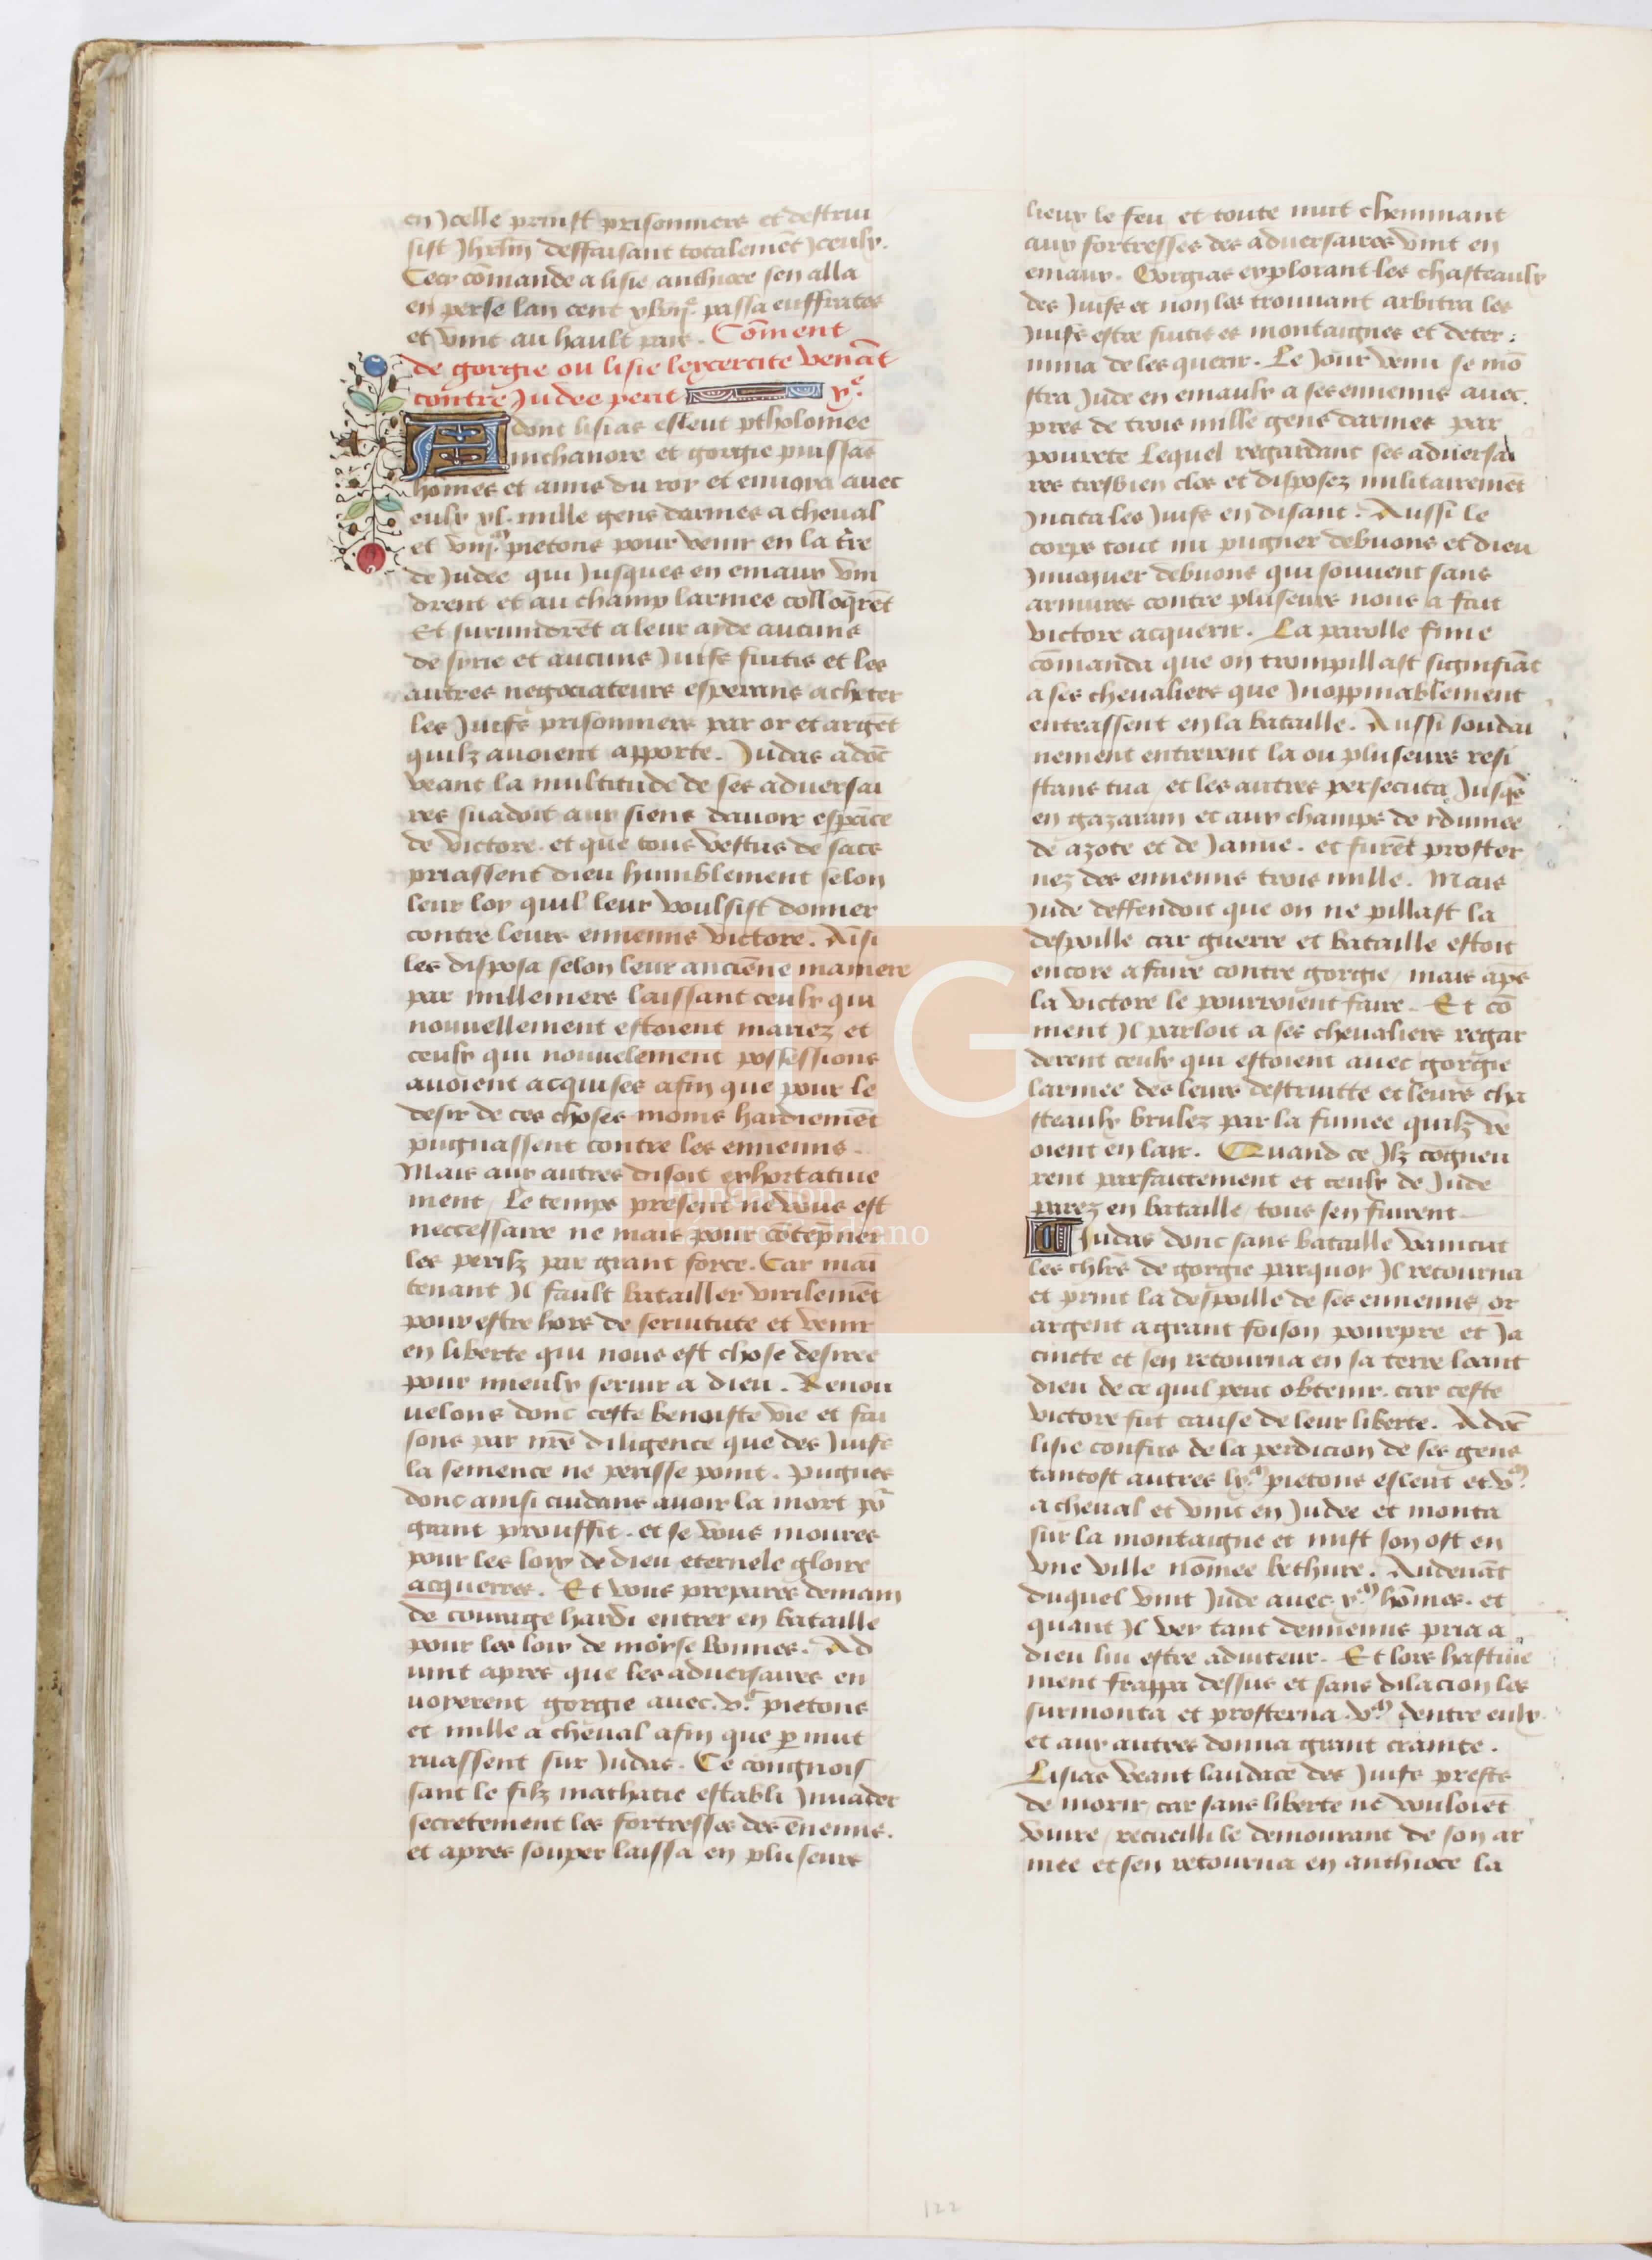 en Jcelle prinst prisonniers et destrui
sist Jhrl̄m deffaisant totalemēt Jceulx.
Cecy cōmande a lisie anthioce sen alla
en perse lan cent xlvij.e passa euffrates
et vint au hault pais. Cōment
de gorgie ou lisie lexercite venāt
contre Judee perit x.e
Adont lisias esleut ptholomee
nichanore et gorgie puissās
hōmes et amis du roy et enuoya auec
eulx xl. mille gens darmes a cheval
et viij.m pietons pour venir en la tr̄e
de Judee qui Jusques en emaux vin
drent et au champ larmee colloq̄rēt
Et suruindrēt a leur ayde aucuns
de syrie et aucuns Juifs fuitis et les
autres negociateurs esperans acheter
les Juifs prisonniers par or et argēt
quilz auoient apporte. Judas adōc
veant la multitude de ses aduersai
res suadoit aux siens dauoir espāce
de victore. et que tous vestus de sacs
priassent dieu humblement selon
leur loy quil leur voulsist donner
contre leurs ennemis victore. Aīsi
les disposa selon leur anciēne maniere
par milleniers laissant ceulx qui
nouuellement estoient mariez et
ceulx qui nouuelement possessions
auoient acquises afin que pour le
desir de ces choses moins hardiemēt
pugnassent contre les ennemis.
Mais aux autres disoit exhortatiue
ment / Le temps present ne vous est
neccessaire ne mais pour cōtēpner
les perilz par grant force. Car mai
tenant Jl fault batailler virilemēt
pour estre hors de seruitute et venir
en liberte qui nous est chose desiree
pour mieulx seruir a dieu. Renou
uelons donc ceste benoiste vie et fai
sons par nr̄e diligence que des Juifs
la semence ne perisse point. Pugnes
donc ainsi cuidans auoir la mort po
grant prouffit. et se vous moures
pour les loix de dieu eternele gloire
acquerres. Et vous prepares demain
de courage hardi entrer en bataille
pour les loix de moyse bonnes. Ad
uint apres que les aduersaires en
uoyerent gorgie auec. v.e pietons
et mille a cheval afin que p nuit
ruassent sur Judas. Ce congnois
sant le filz mathatie establi Jnuader
secretement les fortresses des ēnemis.
et apres souper laissa en pluseurs
lieux le feu et toute nuit cheminant
aux fortresses des aduersaires vint en
emaux. Gorgias explorant les chasteaulx
des Juifs et non les trouuant arbitra les
Juifs estre fuitis es montaignes et deter
mina de les querir. Le Jour venu se mō
stra Jude en emaulx a ses ennemis auec
pres de trois mille gens darmes par
pourete Lequel regardant ses aduersai
res tresbien clos et disposez militairemēt
Jncita les Juifs en disant. Aussi le
corps tout nu pugner debuons et dieu
Jnuoquer debuons qui souuent sans
armures contre pluseurs nous a fait
victore acquerir. La parolle finie
cōmanda que on trompillast signifiāt
a ses chevaliers que Jnoppinablement
entrassent en la bataille. Aussi soudai
nement entrerent la ou pluseurs resi
stans tua / et les autres persecuta Jusq̄s
en gazaram et aux champs de ydumee
de azote et de Jamie. et furēt proster
nez des ennemis trois mille. Mais
Jude deffendoit que on ne pillast la
despoille car guerre et bataille estoit
encore a faire contre gorgie / mais aps
la victore le pourroient faire. Et cō
ment Jl parloit a ses chevaliers regar
derent ceulx qui estoient avec gorgie
larmee des leurs destruitte et leurs cha
steaulx brulez par la fumee quilz ve
oient en lair. Quand ce Jlz cōgneu
rent parfaictement et ceulx de Jude
parez en bataille / tous sen fuirent
Judas donc sans bataille vainciut
les chlr̄s de gorgie parquoy Jl retourna
et print la despoille de ses ennemis / or
argent a grant foison pourpre et Ja
cincte et sen retourna en sa terre loant
dieu de ce quil peut obtenir. car ceste
victore fut cause de leur liberte. Adōc
lisie confus de la perdicion de ses gens
tantost autres lx.m pietons esleut et v.m
a cheval et vint en Judee et monta
sur la montaigne et mist son ost en
vne ville nōmee bethure. Audeuāt
duquel vint Jude avec x.m hōmes. et
quant Jl vey tant dennemis pria a
dieu lui estre aduiteur. Et lors hastiue
ment frappa dessus et sans dilacion les
surmonta et prosterna .v.m dentre eulx
et aux autres donna grant crainte.
Lisias veant laudace des Juifs prests
de morir car sans liberte ne vouloiēt
viure / recueilli le demourant de son ar
mee et sen retourna en anthioce la
Fundación
Lázaro Galdiano
LG
122